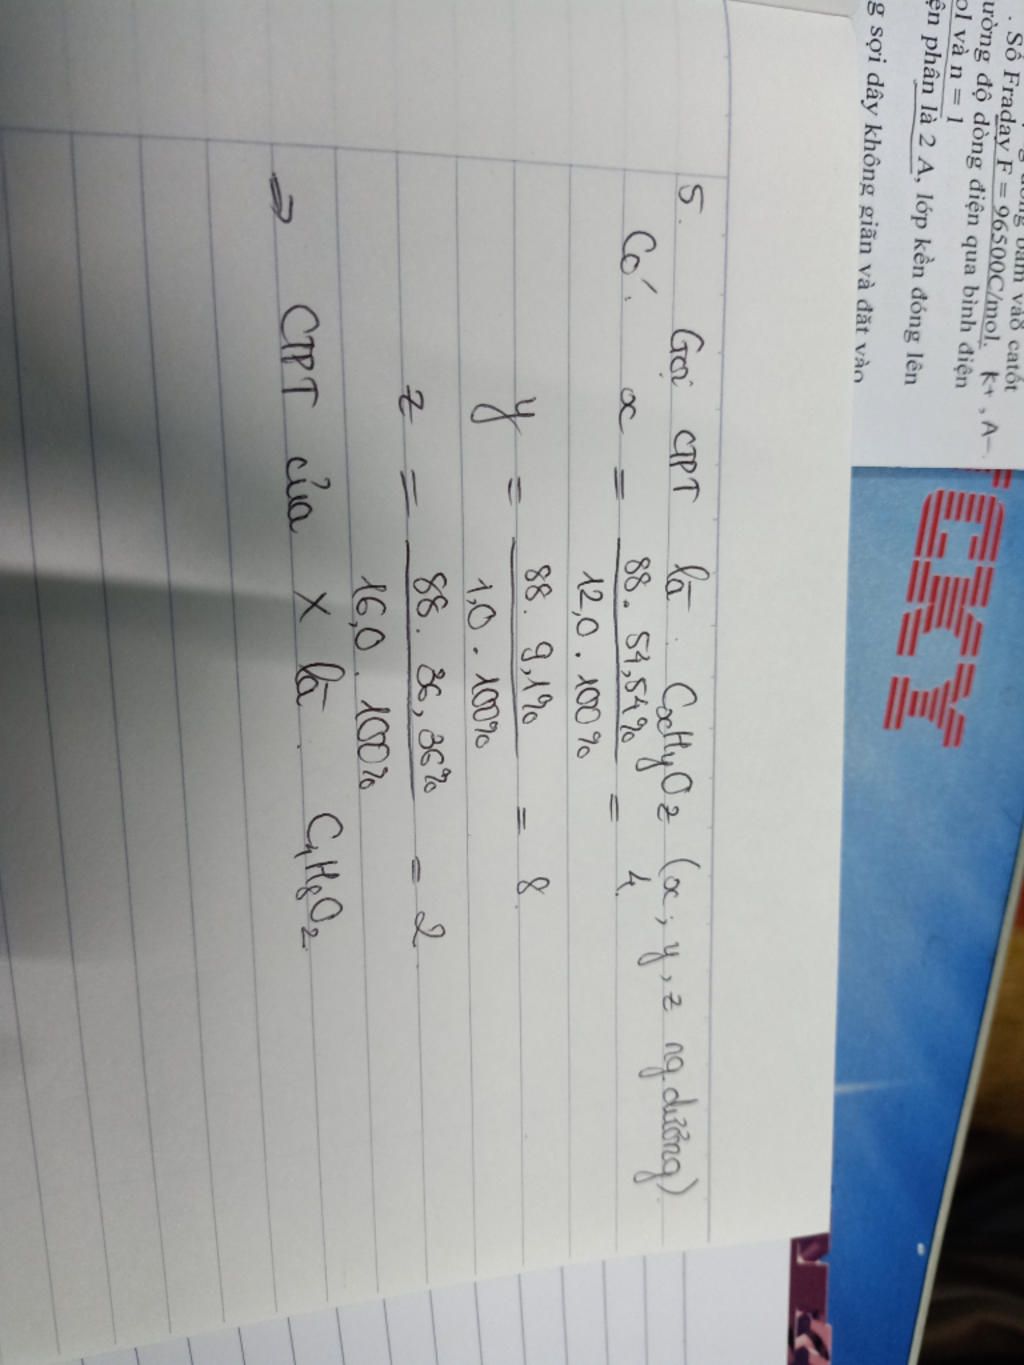 . Số Fraday F = 96500C/mol. K+, A-.
ường độ dòng điện qua bình điện
ol và n = 1
ện phân là 2 A, lớp kền đóng lên
g sợi dây không giãn và đặt vào
CKY
5. Gọi CTPT là : CxHyOz (x, y, z ng.dương)
Có: x = 88. 54,54% / 12,0 . 100% = 4.
y = 88. 9,1% / 1,0 . 100% = 8.
z = 88. 36,36% / 16,0 . 100% = 2
⇒ CTPT của X là : C4H8O2.